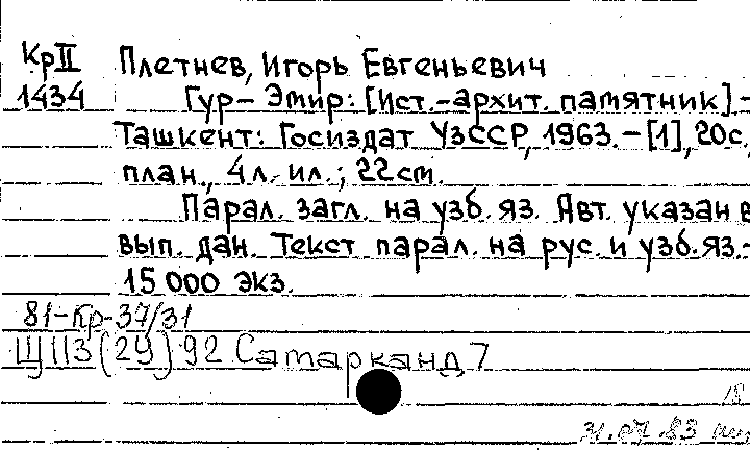 КрII Плетнев, Игорь Евгеньевич
1434 Гур-Эмир: [Ист.-архит. памятник].-
Ташкент: Госиздат УзССР, 1963.-[1], 20с.,
план., 4л. ил.; 22см.
Парал. загл. на узб. яз. Авт. указан в
вып. дан. Текст парал. на рус. и узб. яз.-
15 000 экз.
81-Кр-37/31
Щ113(2У)92 Самарканд 7
18
31.07.83